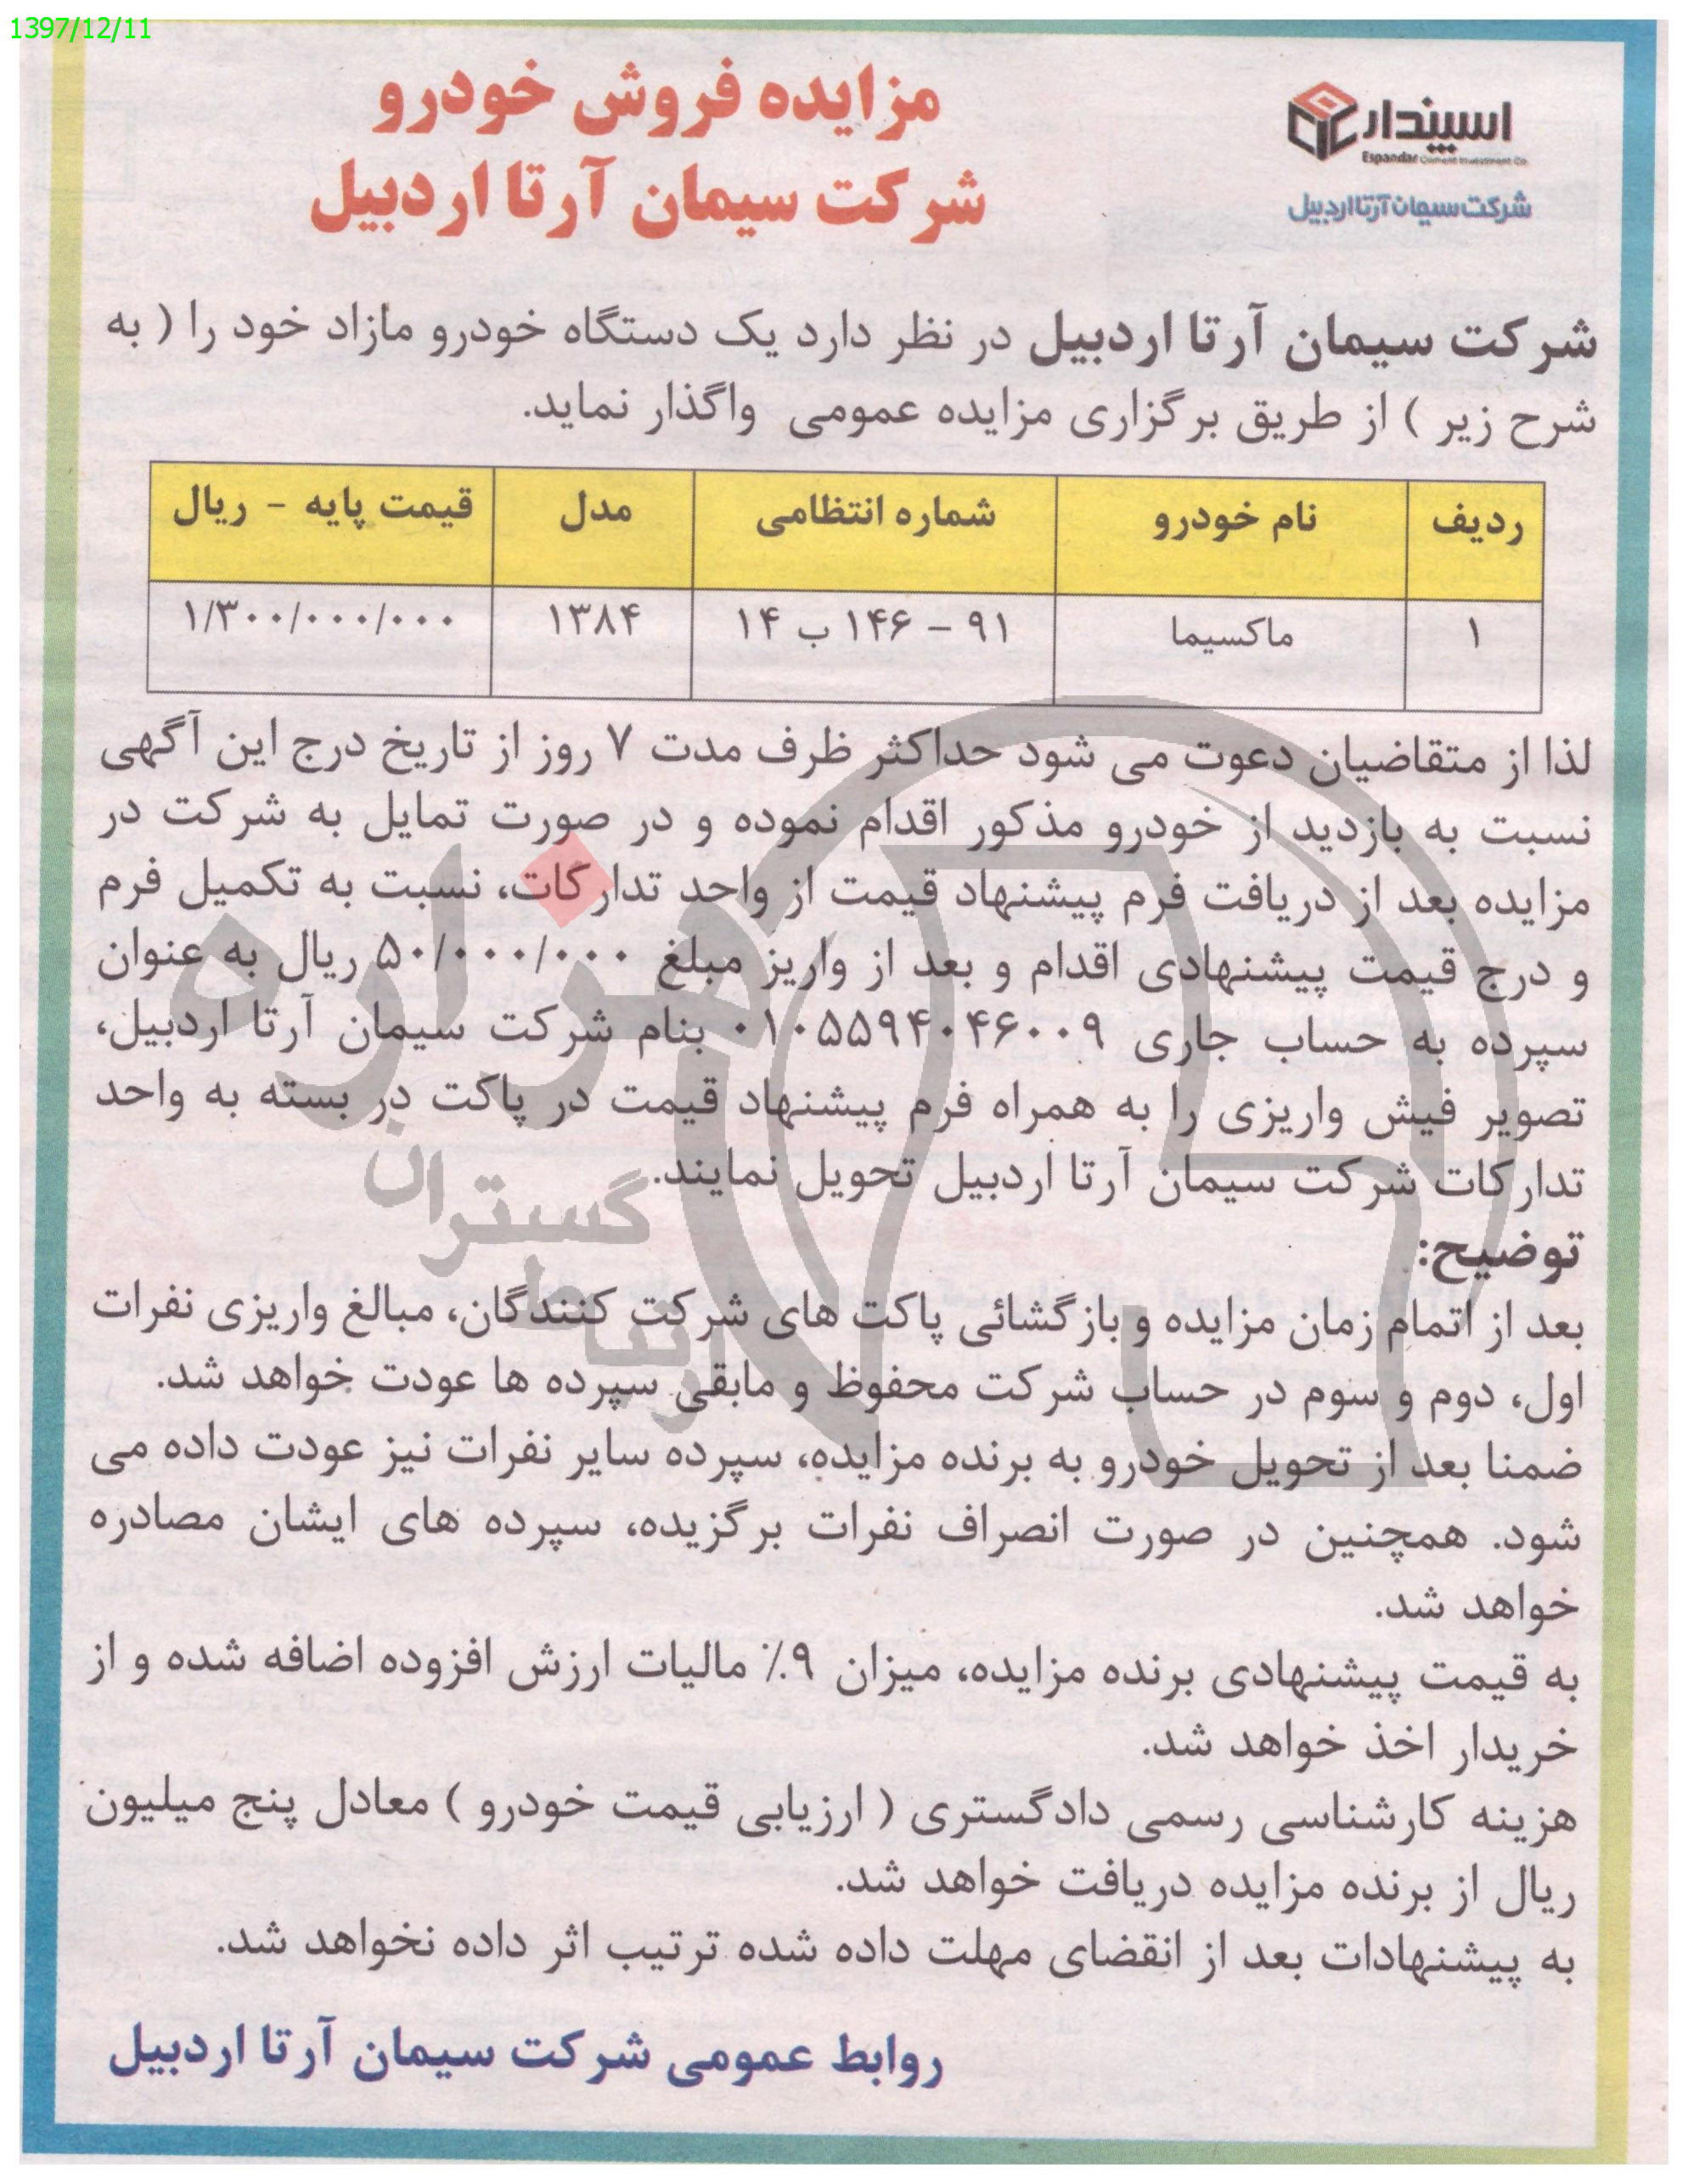 1397/12/11
اسپندار
Espandar Cement Investment Co.
شرکت سیمان آرتا اردبیل
مزایده فروش خودرو
شرکت سیمان آرتا اردبیل
شرکت سیمان آرتا اردبیل در نظر دارد یک دستگاه خودرو مازاد خود را ( به
شرح زیر ) از طریق برگزاری مزایده عمومی واگذار نماید.
ردیف نام خودرو شماره انتظامی مدل قیمت پایه - ریال
۱ ماکسیما ۹۱ - ۱۴۶ ب ۱۴ ۱۳۸۴ ۱/۳۰۰/۰۰۰/۰۰۰
لذا از متقاضیان دعوت می شود حداکثر ظرف مدت ۷ روز از تاریخ درج این آگهی
نسبت به بازدید از خودرو مذکور اقدام نموده و در صورت تمایل به شرکت در
مزایده بعد از دریافت فرم پیشنهاد قیمت از واحد تدارکات، نسبت به تکمیل فرم
و درج قیمت پیشنهادی اقدام و بعد از واریز مبلغ ۵۰/۰۰۰/۰۰۰ ریال به عنوان
سپرده به حساب جاری ۰۱۰۵۵۹۴۰۴۶۰۰۹ بنام شرکت سیمان آرتا اردبیل،
تصویر فیش واریزی را به همراه فرم پیشنهاد قیمت در پاکت در بسته به واحد
تدارکات شرکت سیمان آرتا اردبیل تحویل نمایند.
توضیح:
بعد از اتمام زمان مزایده و بازگشائی پاکت های شرکت کنندگان، مبالغ واریزی نفرات
اول، دوم و سوم در حساب شرکت محفوظ و مابقی سپرده ها عودت خواهد شد.
ضمنا بعد از تحویل خودرو به برنده مزایده، سپرده سایر نفرات نیز عودت داده می
شود. همچنین در صورت انصراف نفرات برگزیده، سپرده های ایشان مصادره
خواهد شد.
به قیمت پیشنهادی برنده مزایده، میزان ۹٪ مالیات ارزش افزوده اضافه شده و از
خریدار اخذ خواهد شد.
هزینه کارشناسی رسمی دادگستری ( ارزیابی قیمت خودرو ) معادل پنج میلیون
ریال از برنده مزایده دریافت خواهد شد.
به پیشنهادات بعد از انقضای مهلت داده شده ترتیب اثر داده نخواهد شد.
روابط عمومی شرکت سیمان آرتا اردبیل
هزاره
گستران
ارتباط